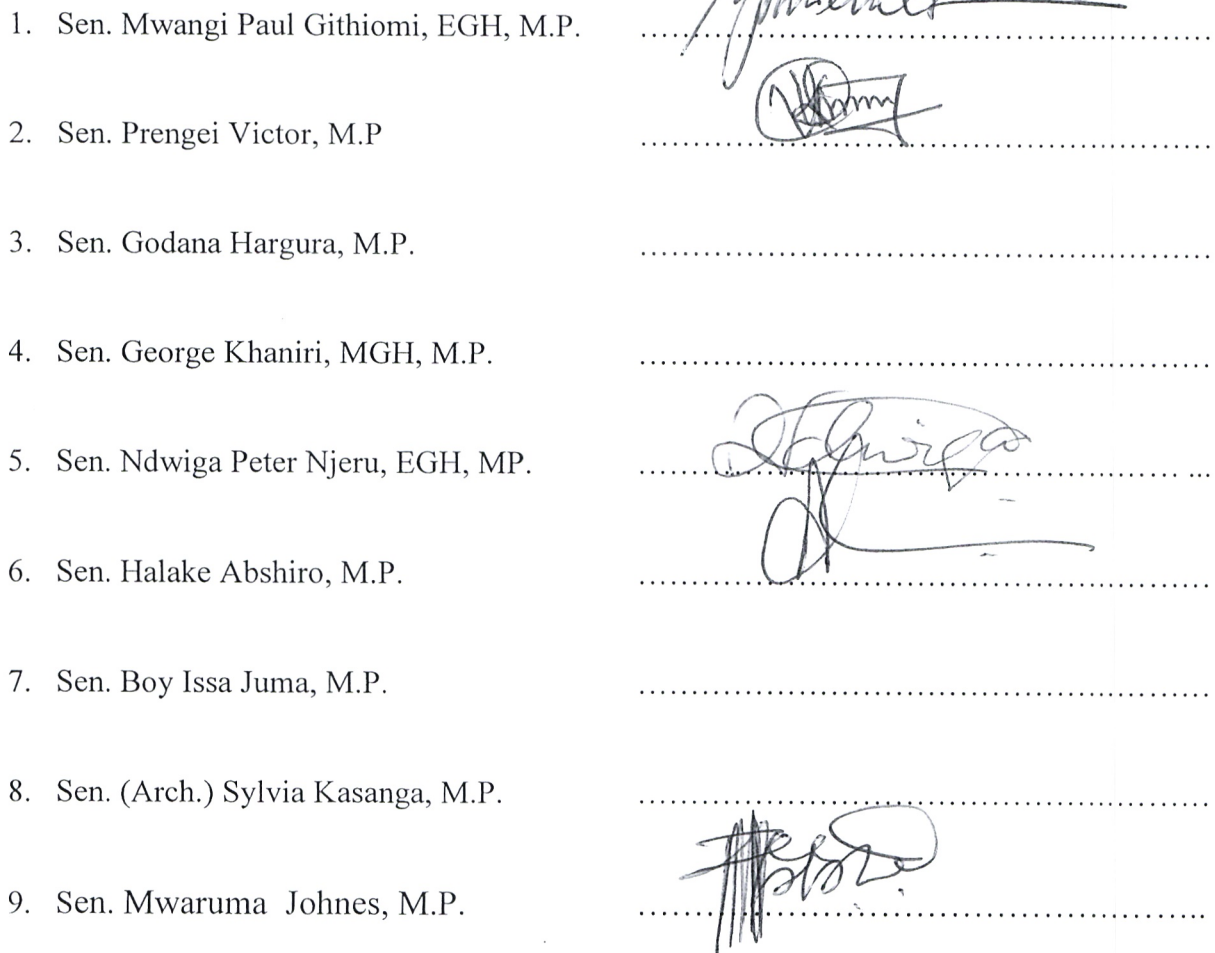 1. Sen. Mwangi Paul Githiomi, EGH, M.P. ............................................................
2. Sen. Prengei Victor, M.P ............................................................
3. Sen. Godana Hargura, M.P. ............................................................
4. Sen. George Khaniri, MGH, M.P. ............................................................
5. Sen. Ndwiga Peter Njeru, EGH, MP. ............................................................
6. Sen. Halake Abshiro, M.P. ............................................................
7. Sen. Boy Issa Juma, M.P. ............................................................
8. Sen. (Arch.) Sylvia Kasanga, M.P. ............................................................
9. Sen. Mwaruma Johnes, M.P. ............................................................